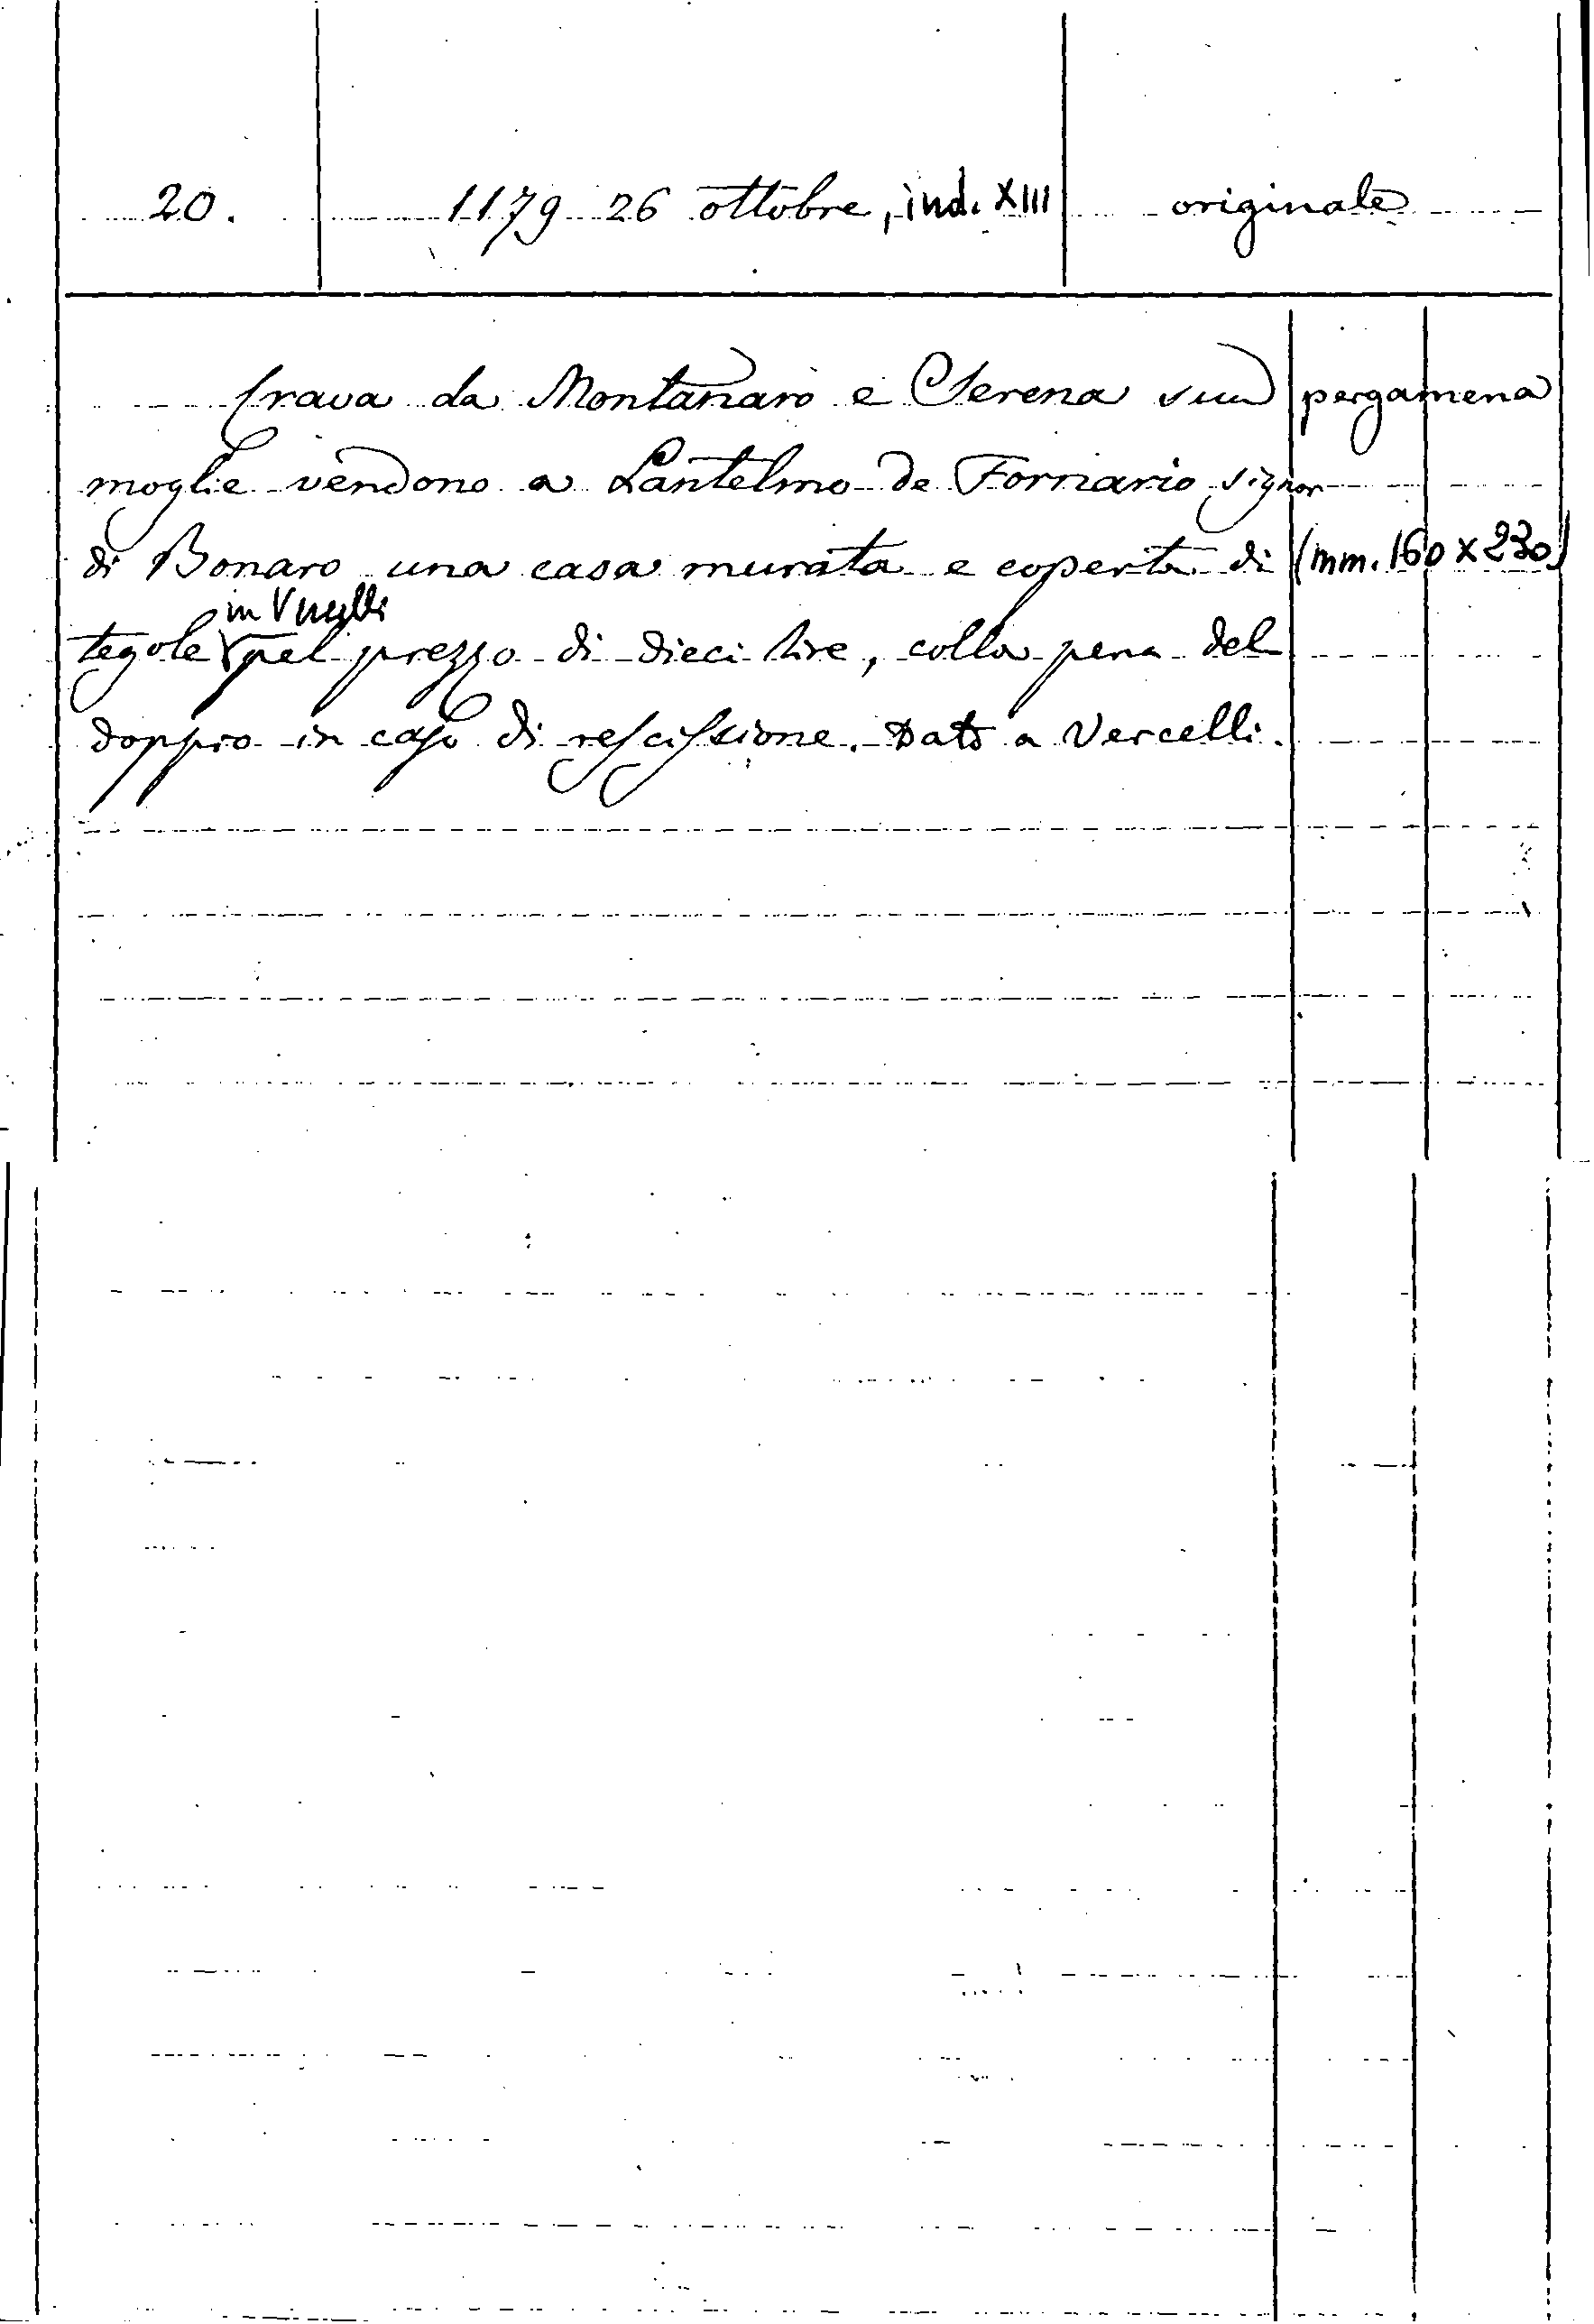 20. 1179 26 ottobre, ind. XIII originale
Crava da Montanaro e Serena sua pergamena
moglie vendono a Lantelmo de Fornario signor
di Bonaro una casa murata e coperta di (mm. 160 x 230)
in Vercelli
tegole pel prezzo di dieci lire, colla pena del
doppio in caso di rescissione. Dato a Vercelli.